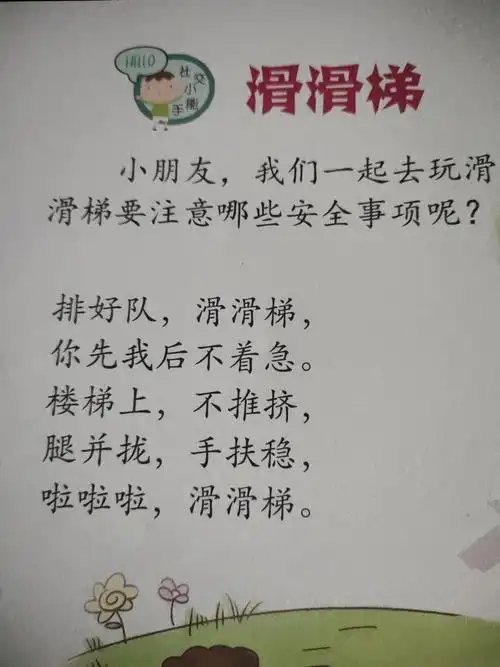 HELLO
社交
小能
手
滑滑梯
小朋友，我们一起去玩滑
滑梯要注意哪些安全事项呢？
排好队，滑滑梯，
你先我后不着急。
楼梯上，不推挤，
腿并拢，手扶稳，
啦啦啦，滑滑梯。